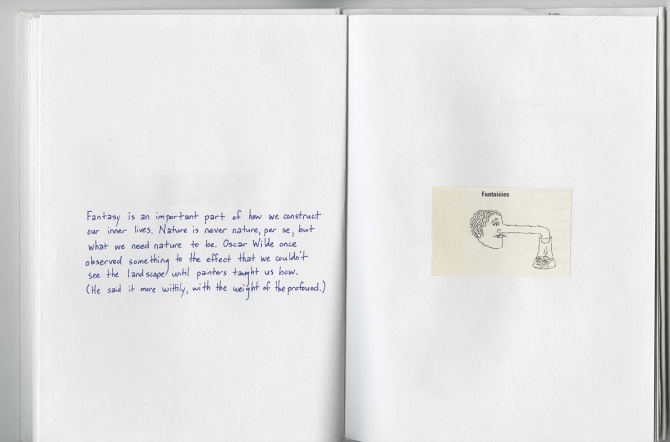 Fantasy is an important part of how we construct
our inner lives. Nature is never nature, per se, but
what we need nature to be. Oscar Wilde once
observed something to the effect that we couldn't
see the landscape until painters taught us how.
(He said it more wittily, with the weight of the profound.)
Fantaisies